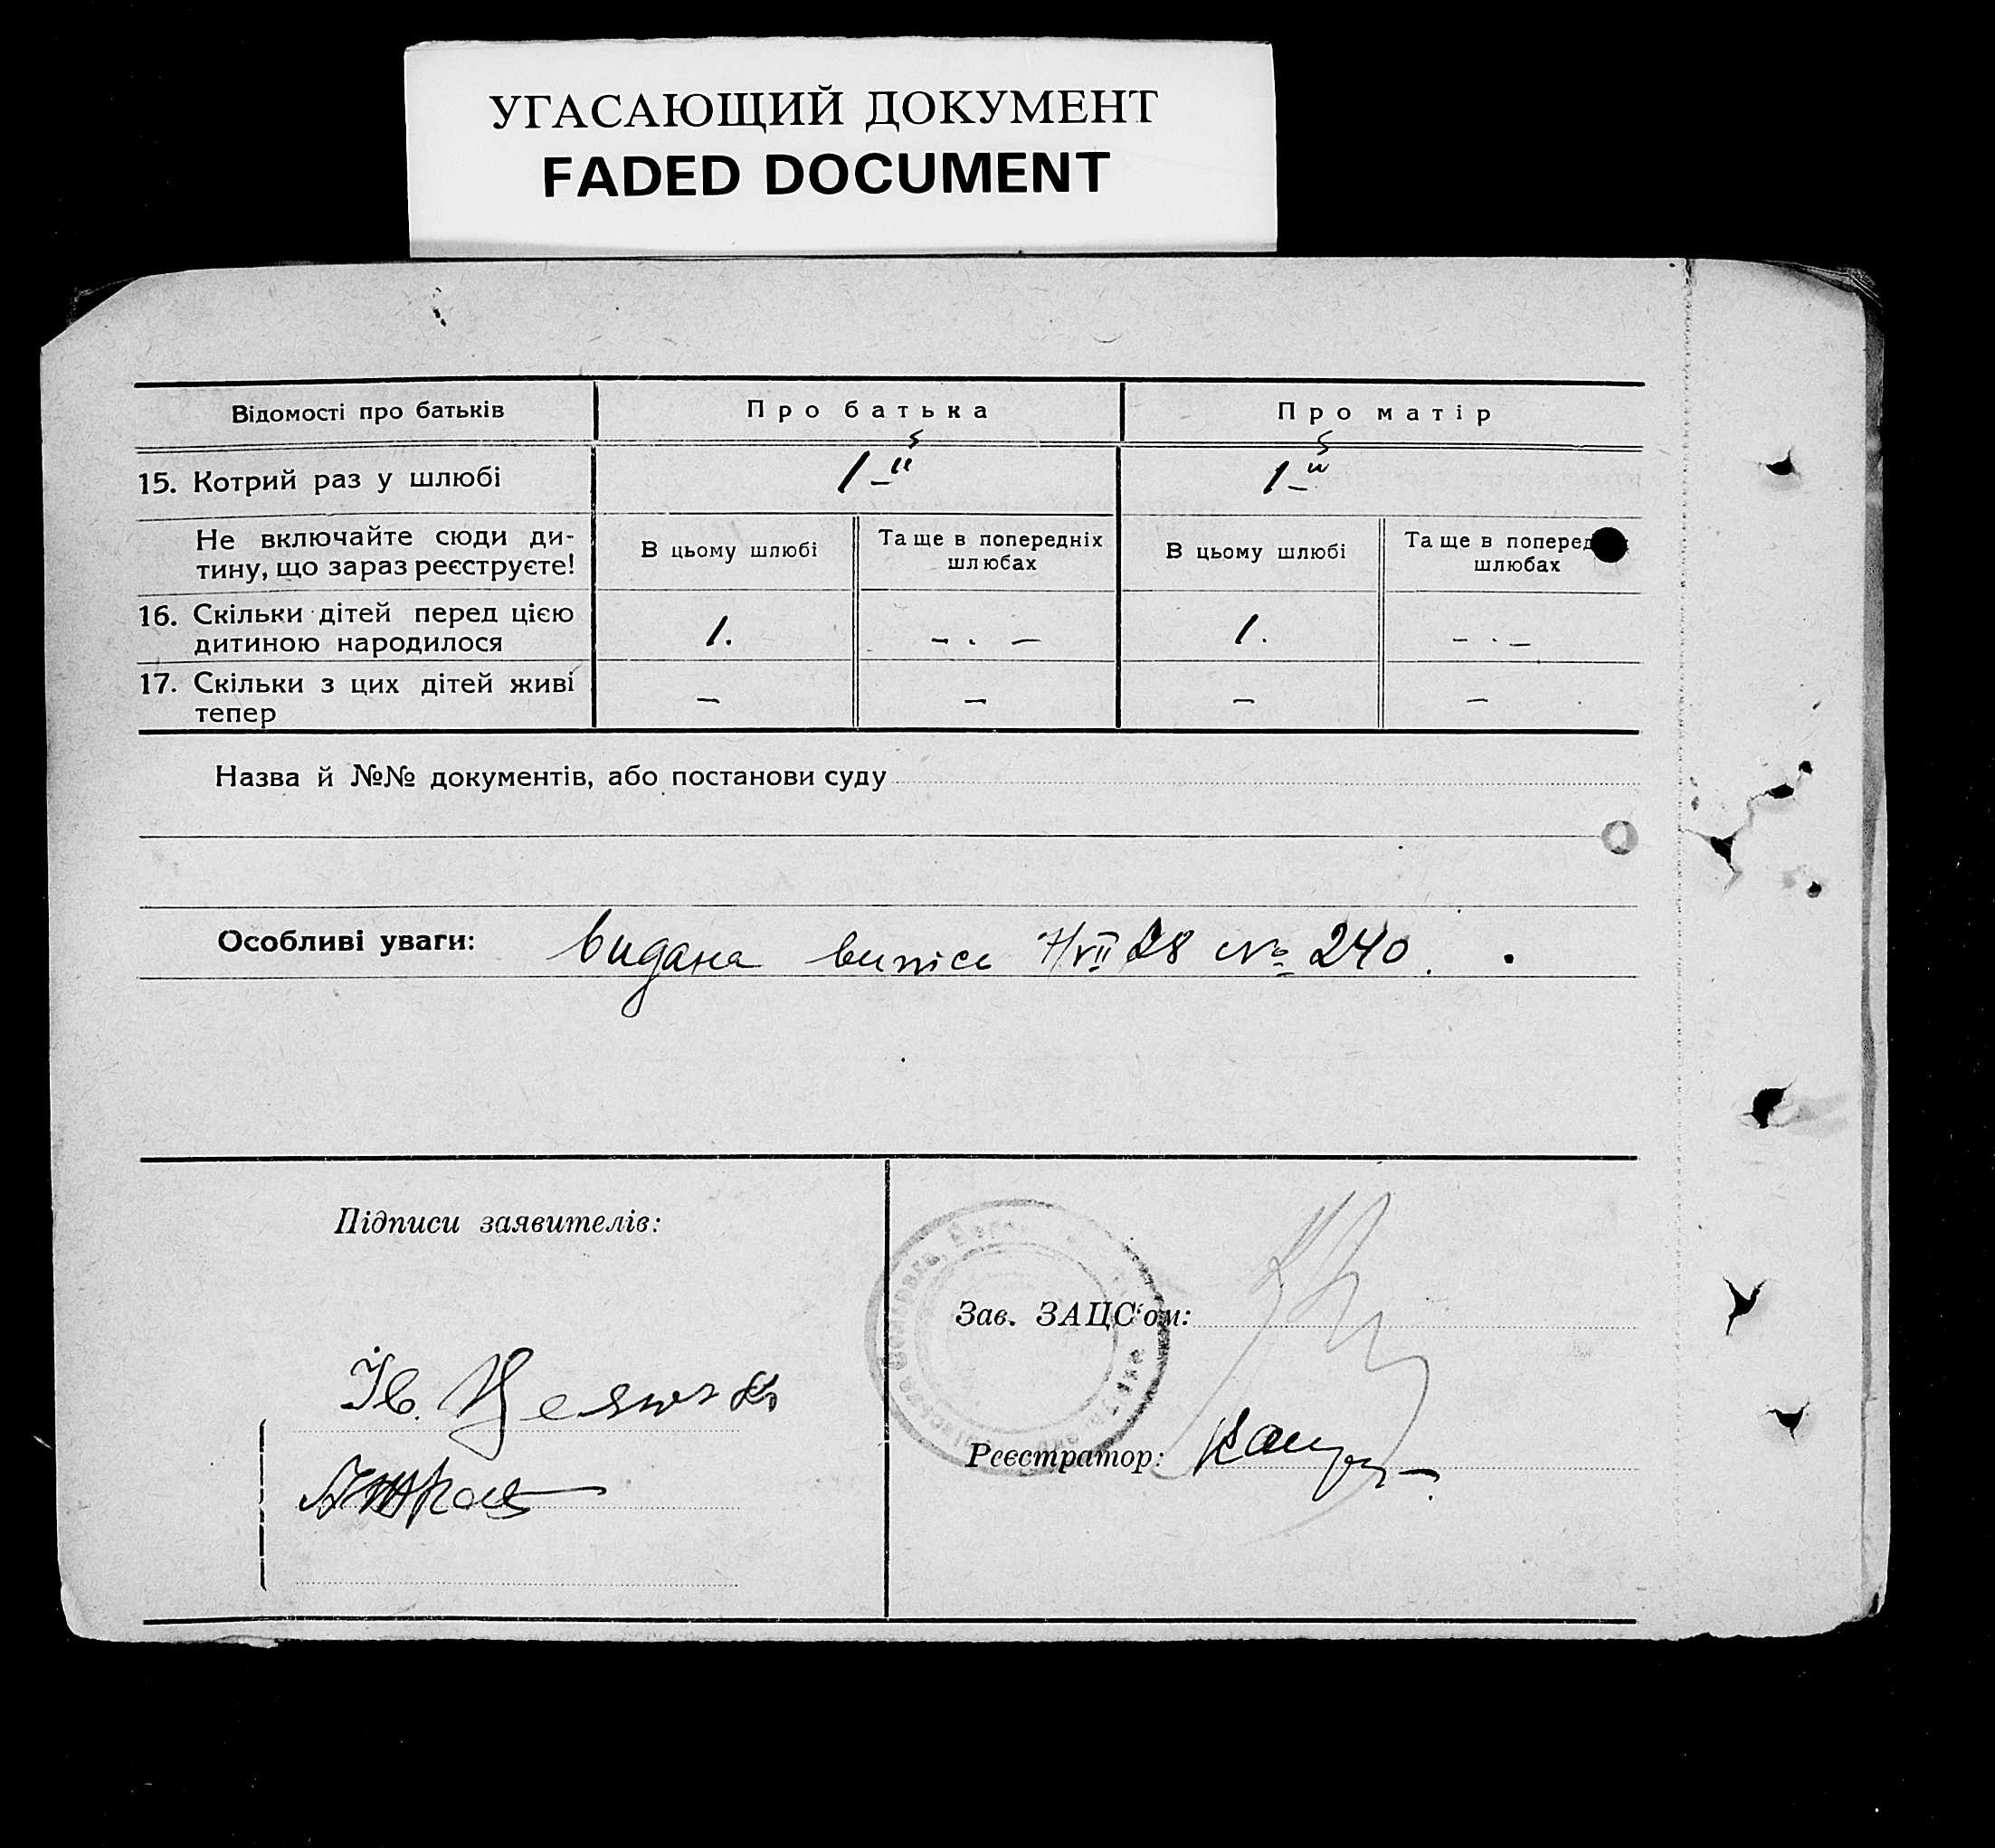 УГАСАЮЩИЙ ДОКУМЕНТ
FADED DOCUMENT
Відомості про батьків
Про батька
Про матір
15. Котрий раз у шлюбі
1-й
1-й
Не включайте сюди ди-
тину, що зараз реєструєте!
В цьому шлюбі
Та ще в попередніх
шлюбах
В цьому шлюбі
Та ще в поперед
шлюбах
16. Скільки дітей перед цією
дитиною народилося
1.
- . -
1.
- . -
17. Скільки з цих дітей живі
тепер
-
-
-
-
Назва й №№ документів, або постанови суду
Особливі уваги: видана випись 7/VII 28 № 240.
Підписи заявителів:
Зав. ЗАЦС'ом:
Ів.
Реєстратор: